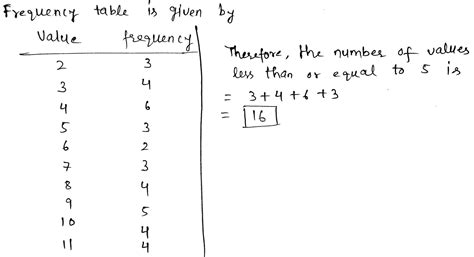 Frequency table is given by
Value frequency
2 3
3 4
4 6
5 3
6 2
7 3
8 4
9 5
10 4
11 4
Therefore, the number of values
less than or equal to 5 is
= 3+4+6+3
= 16